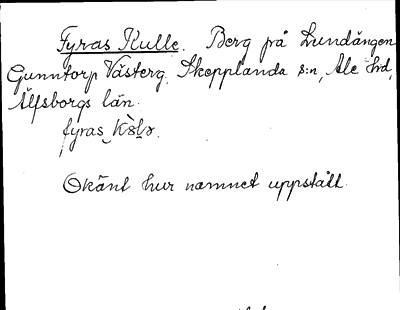 Fyras Kulle. Berg på Lundängen
Gunntorp Västerg. Skepplanda s:n, Ale hd,
Älfsborgs län.
fyras
Okänt hur namnet uppstått.